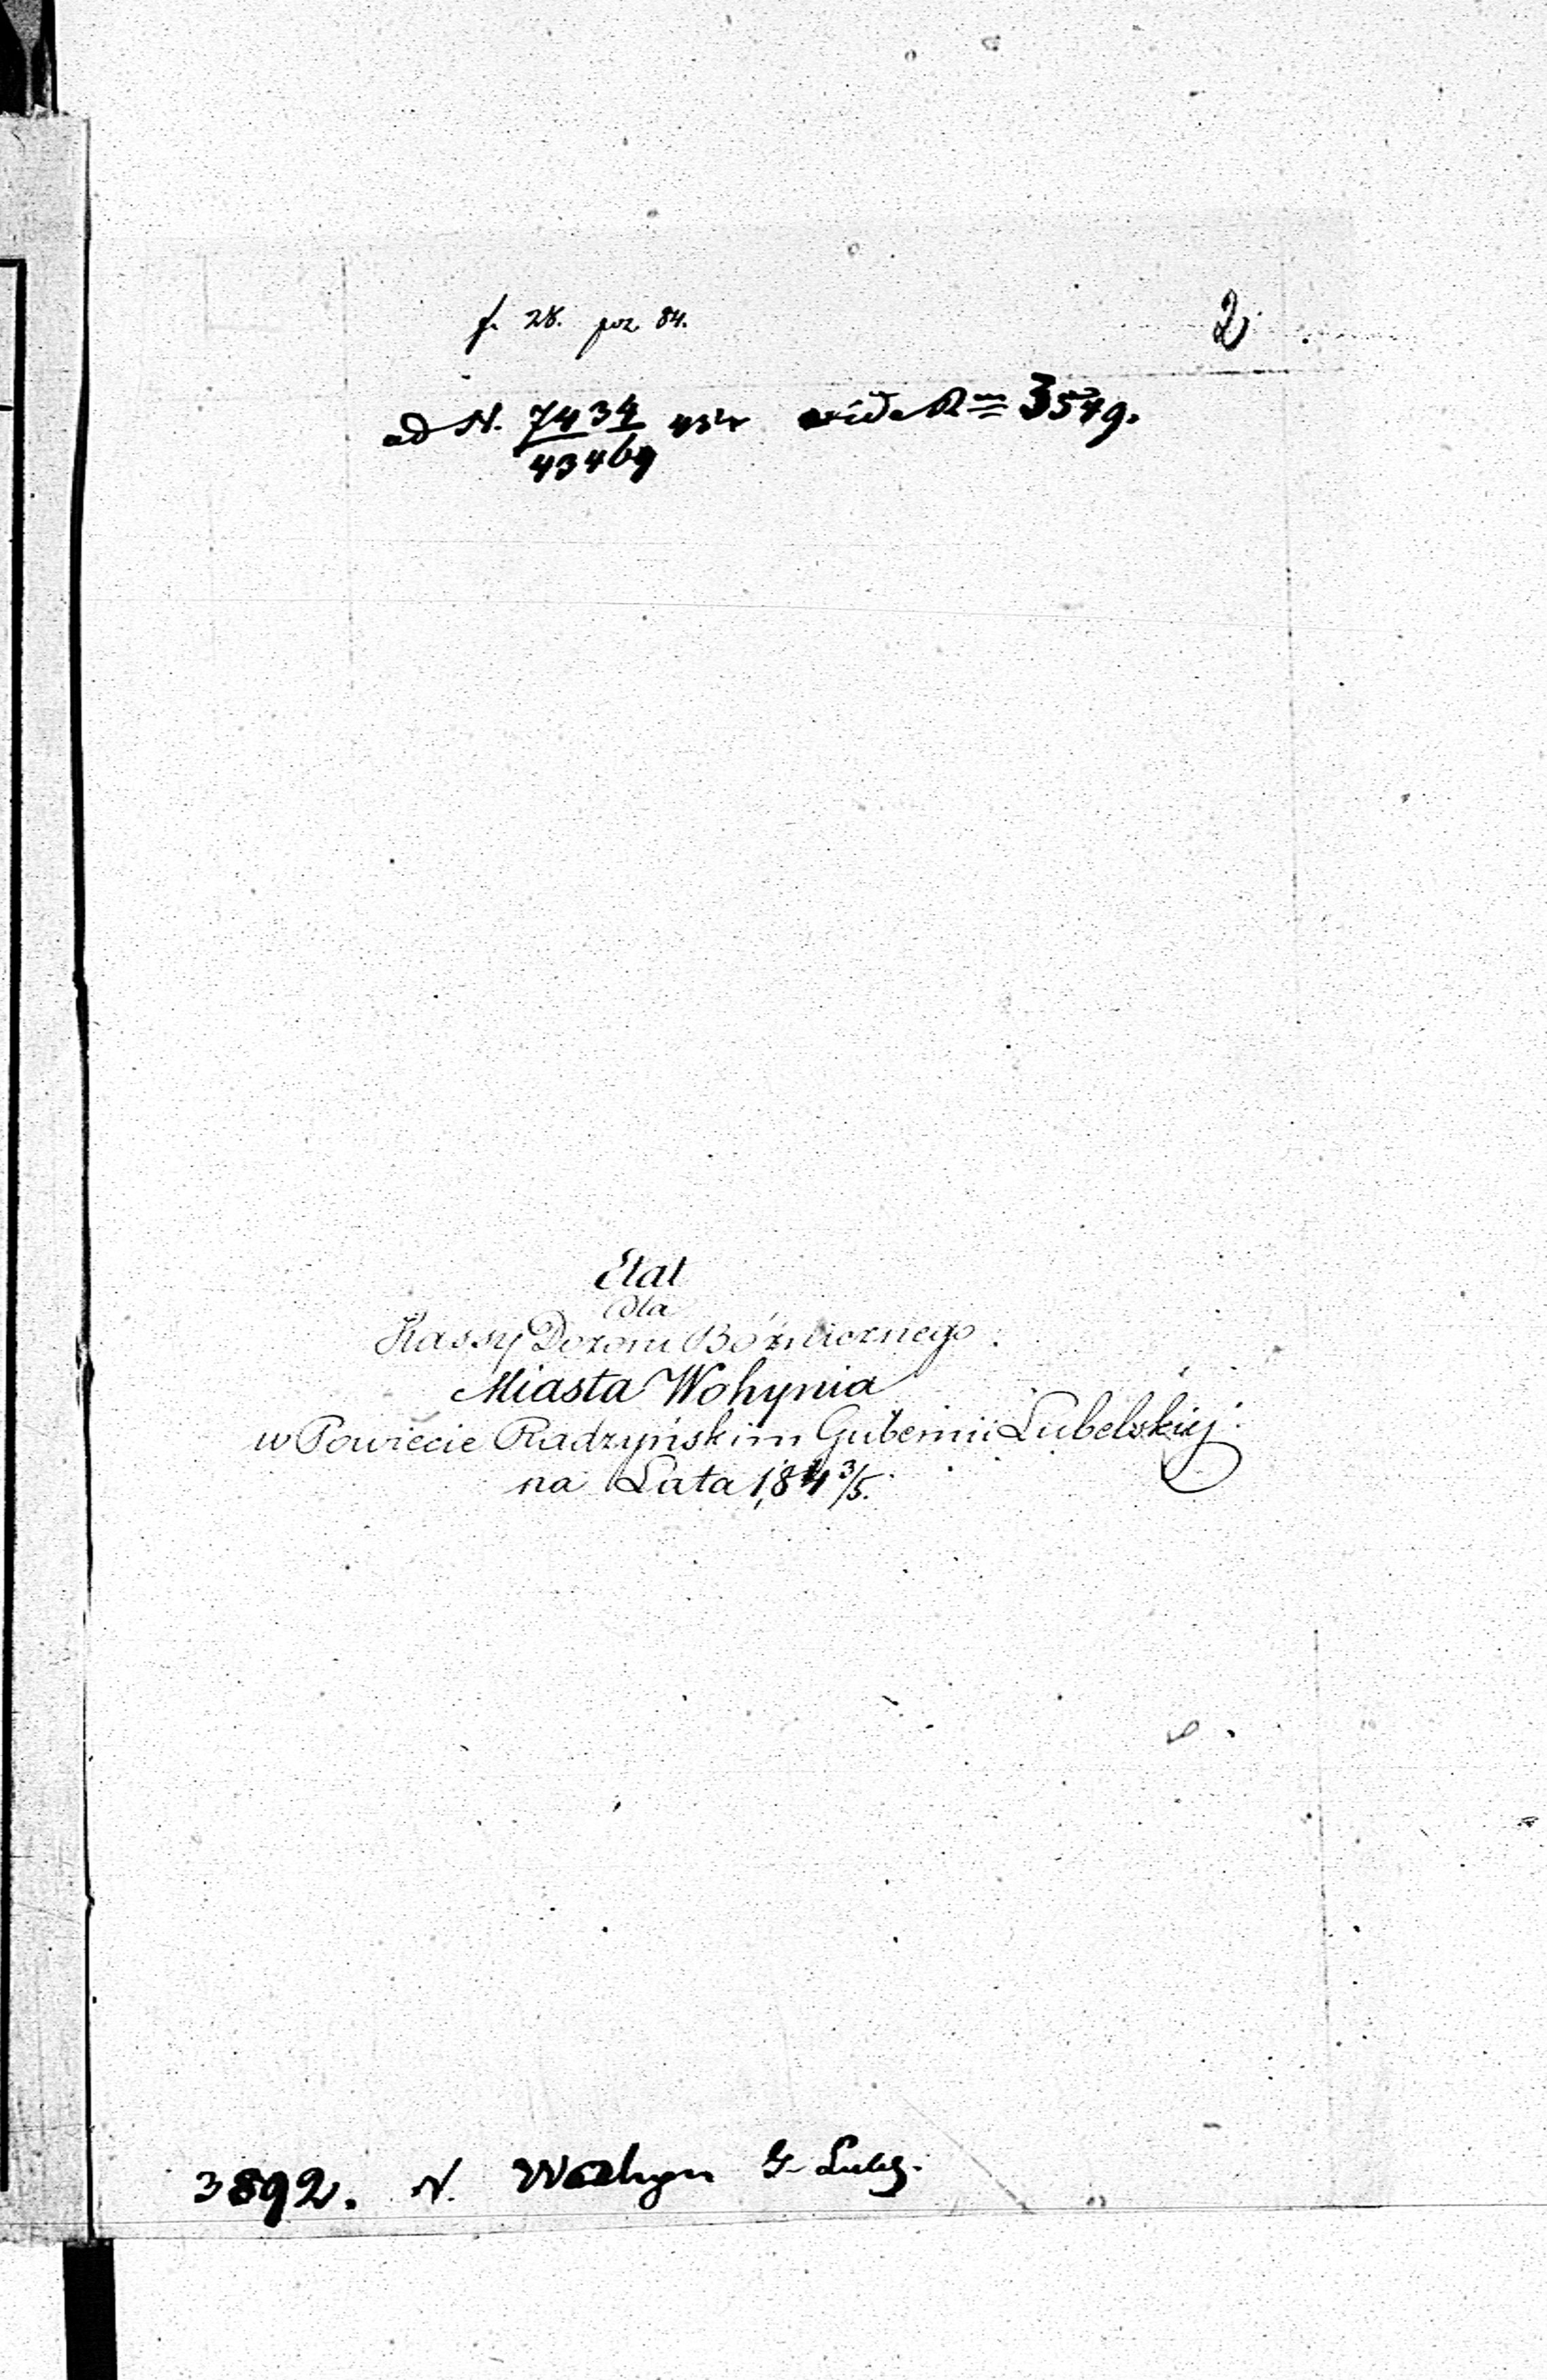 f. 28. poz 84.
2
ad N. 7434/43469 vide 3549.
Etat
dla
Kassy Dozoru Bóżnicznego
Miasta Wohynia
w Powiecie Radzyńskim Gubernii Lubelskiej
na Lata 184 3/5.
3892. N. Wohyn G. Lubel.